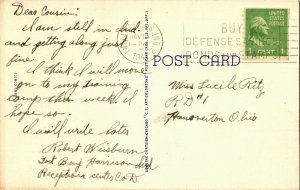 Dear Cousin:
I am still in Ind.
and getting along just
fine
I think I will move
on to my training
camp this week. I
hope so.
I will write later
Robert Wisburn
Fort Benj Harrison Ind
Receptions center Co D
IND.
BUY
DEFENSE
BONDS
POST CARD
Miss Lucile Ritz
R D #1
Hanoverton Ohio